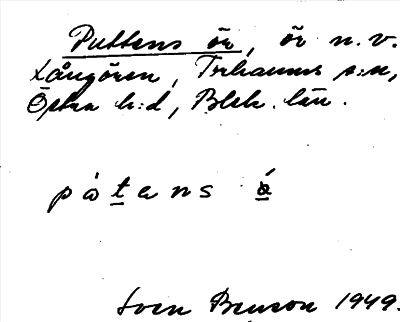 Puttens ör, ör n.v.
Långören, Torhamns s:n,
Östra h:d, Blek. län.
påtens ö
Sven Benson 1949.